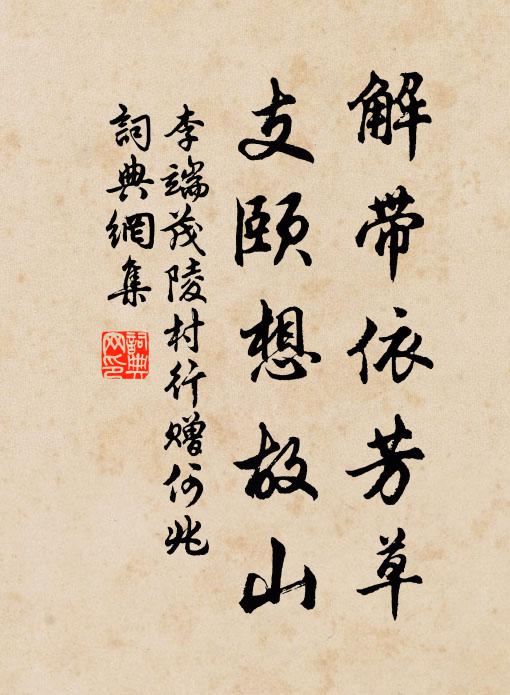 解带依芳草
支颐想故山
李端茂陵村行赠何兆
词典網集
词典网印